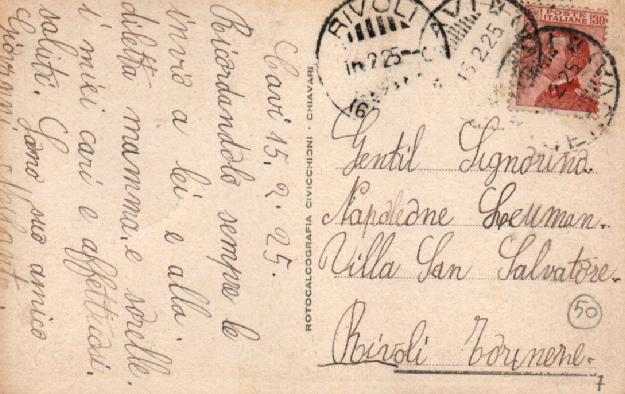 Cavi 15.2.25.
Ricordandolo sempre le
invio a lei e alla
diletta mamma e sorelle.
i miei cari e affettuosi.
saluti. Sono suo amico
Giovanni
ROTOCALCOGRAFIA CIVICCHIONI · CHIAVARI
RIVOLI
16.2.25
CAVI
15.2.25
POSTE
ITALIANE
30
Gentil Signorino.
Napoleone Leuman.
Villa San Salvatore.
Rivoli Torinese.
50
7